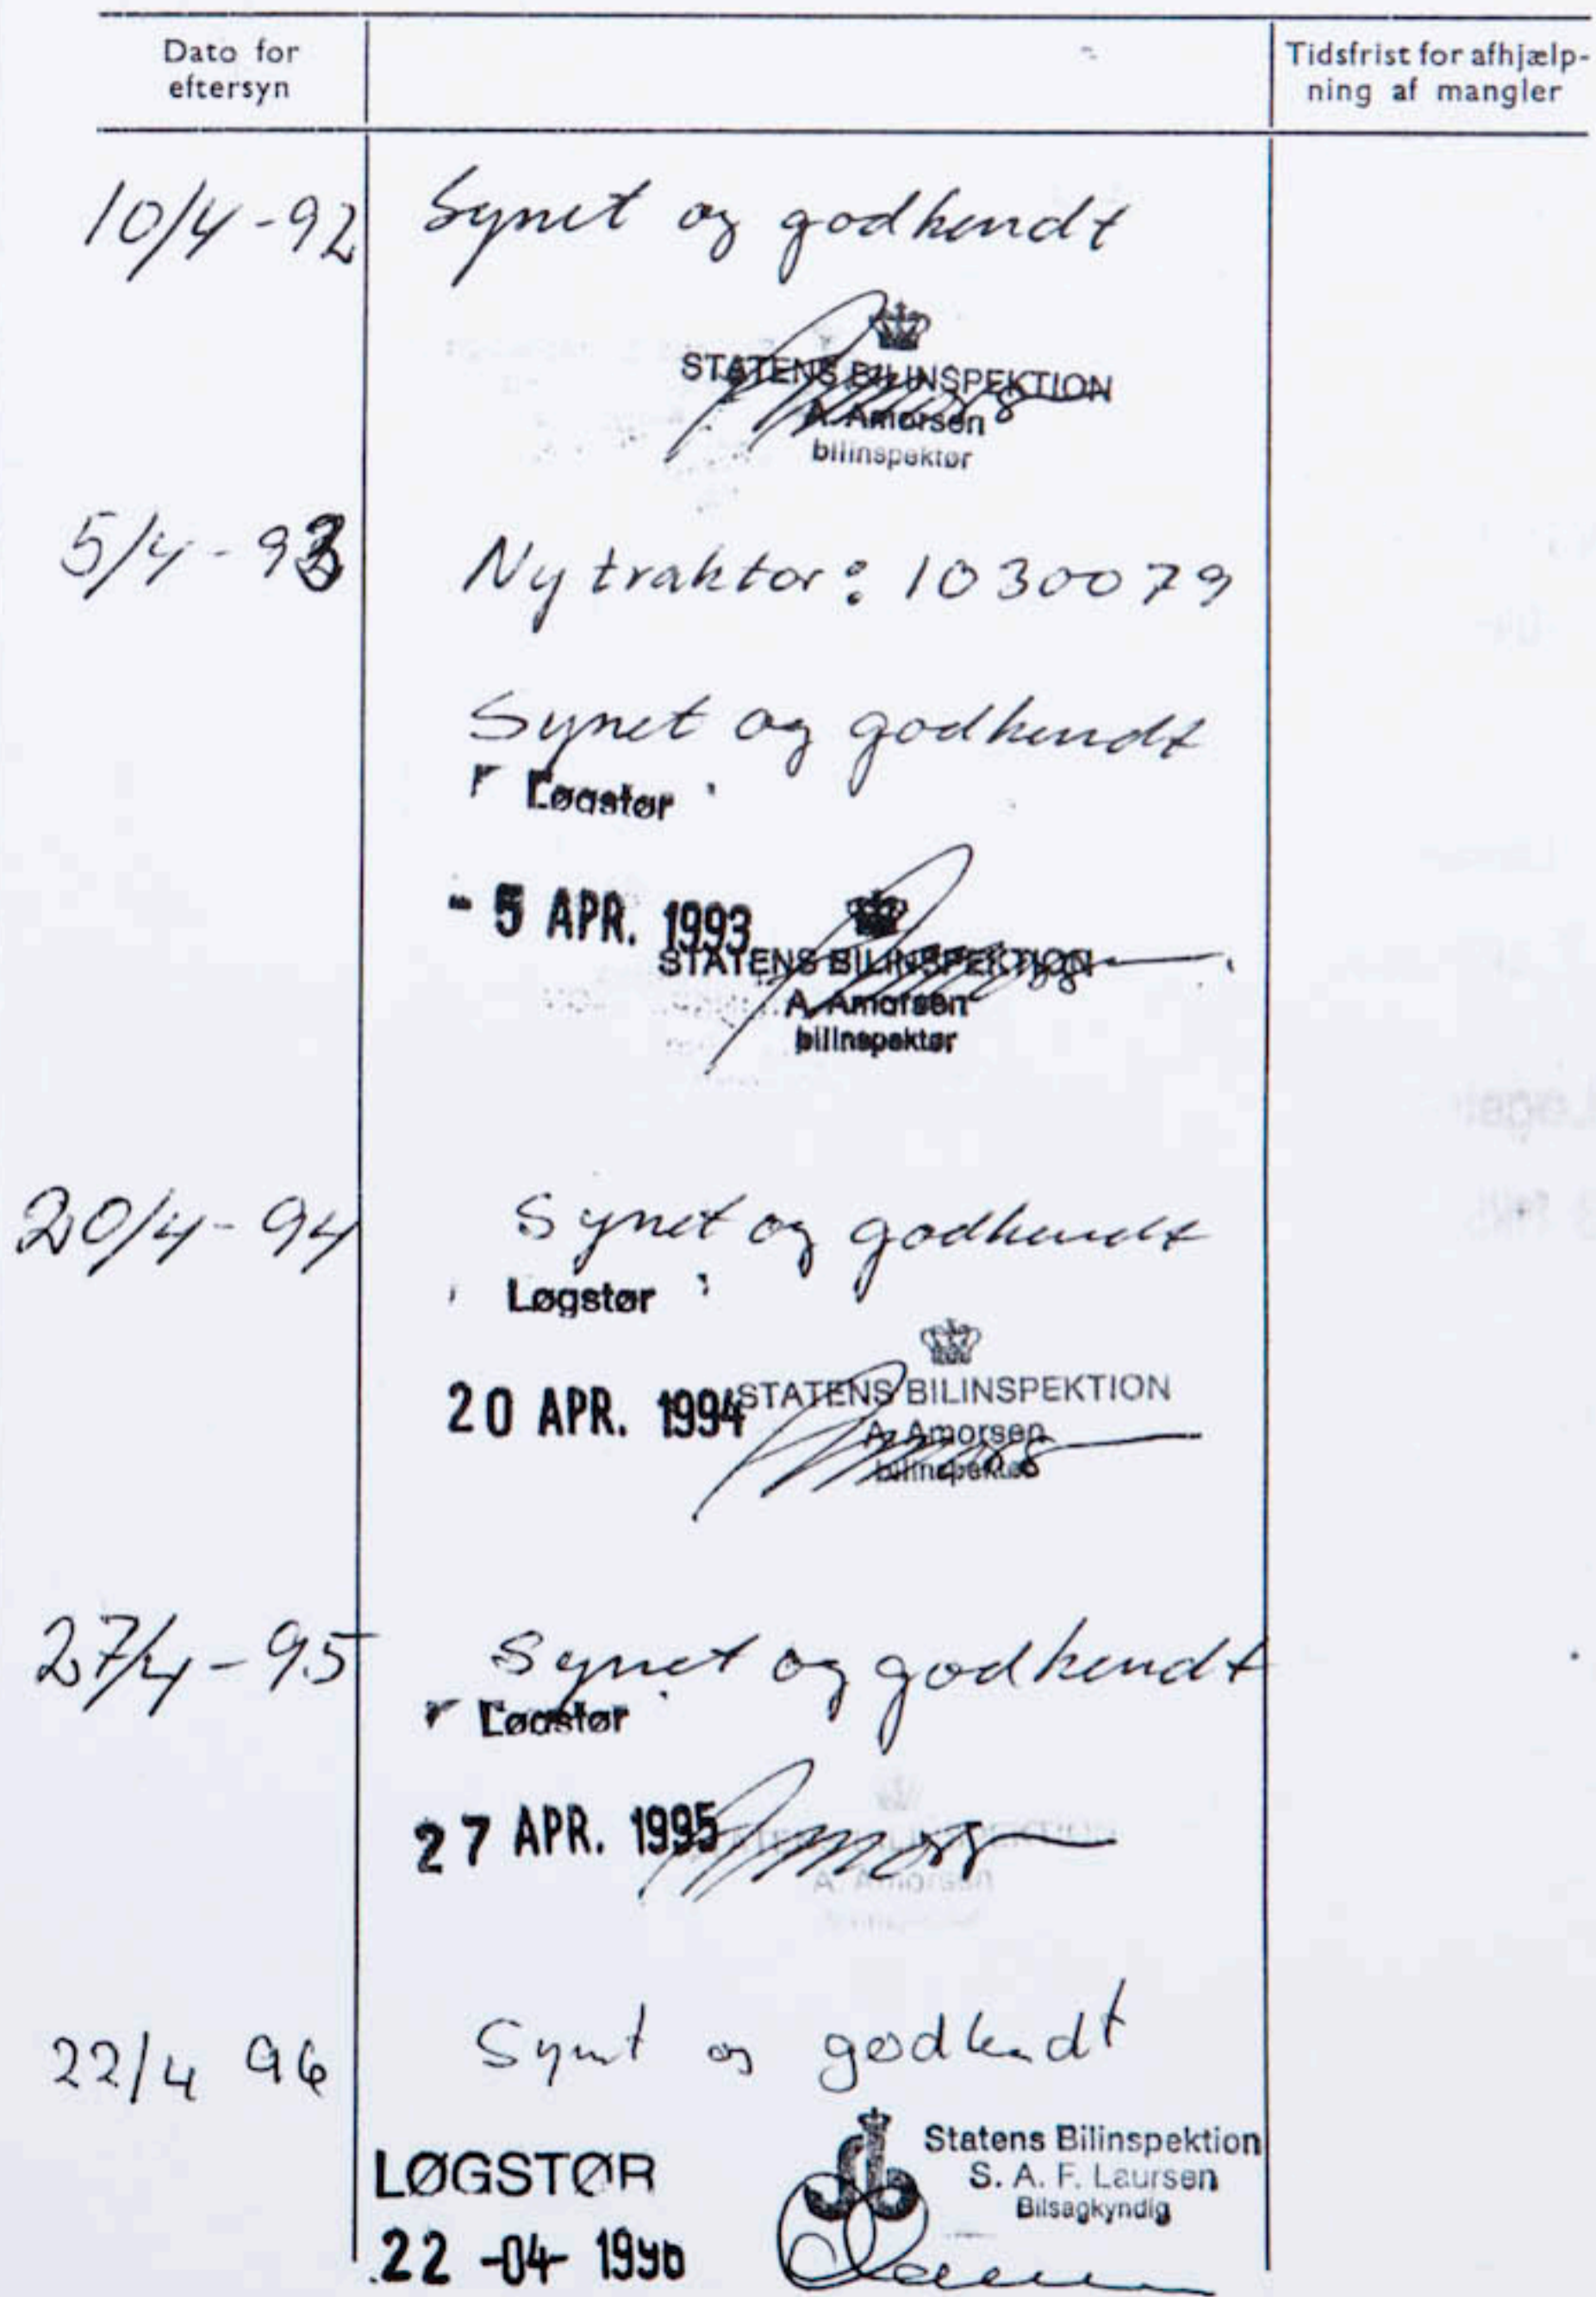 Dato for
eftersyn
Tidsfrist for afhjælp-
ning af mangler
10/4-92 Synet og godkendt
STATENS BILINSPEKTION
A. Amorsen
bilinspektør
5/4-93 Ny traktor: 1030079
Synet og godkendt
Løgstør
- 5 APR. 1993
STATENS BILINSPEKTION
A. Amorsen
bilinspektør
20/4-94 Synet og godkendt
Løgstør
20 APR. 1994 STATENS BILINSPEKTION
A. Amorsen
bilinspektør
27/4-95 Synet og godkendt
Løgstør
27 APR. 1995
A. Amorsen
22/4 96 Synet og godkendt
Statens Bilinspektion
LØGSTØR S. A. F. Laursen
Bilsagkyndig
22 -04- 1996